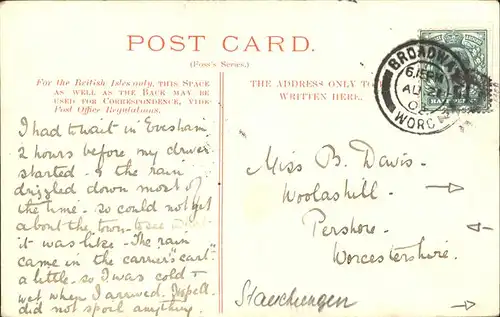 POST CARD.
(Foss's Series.)
For the British Isles only, THIS SPACE
AS WELL AS THE BACK MAY BE
USED FOR CORRESPONDENCE, VIDE
Post Office Regulations.
THE ADDRESS ONLY TO
WRITTEN HERE.
BROADWAY
6.15PM
AU 21
WORC
HALFPENNY
I had to wait in Evesham
2 hours before my driver
started - & the rain
drizzled down most of
the time. so could not get
about the town to see what
it was like. The rain
came in the carrier's "cart"
a little. so I was cold &
wet when I arrived.
did not spoil anything
Miss B. Davis.
Woolashill
Pershore.
Worcestershire.